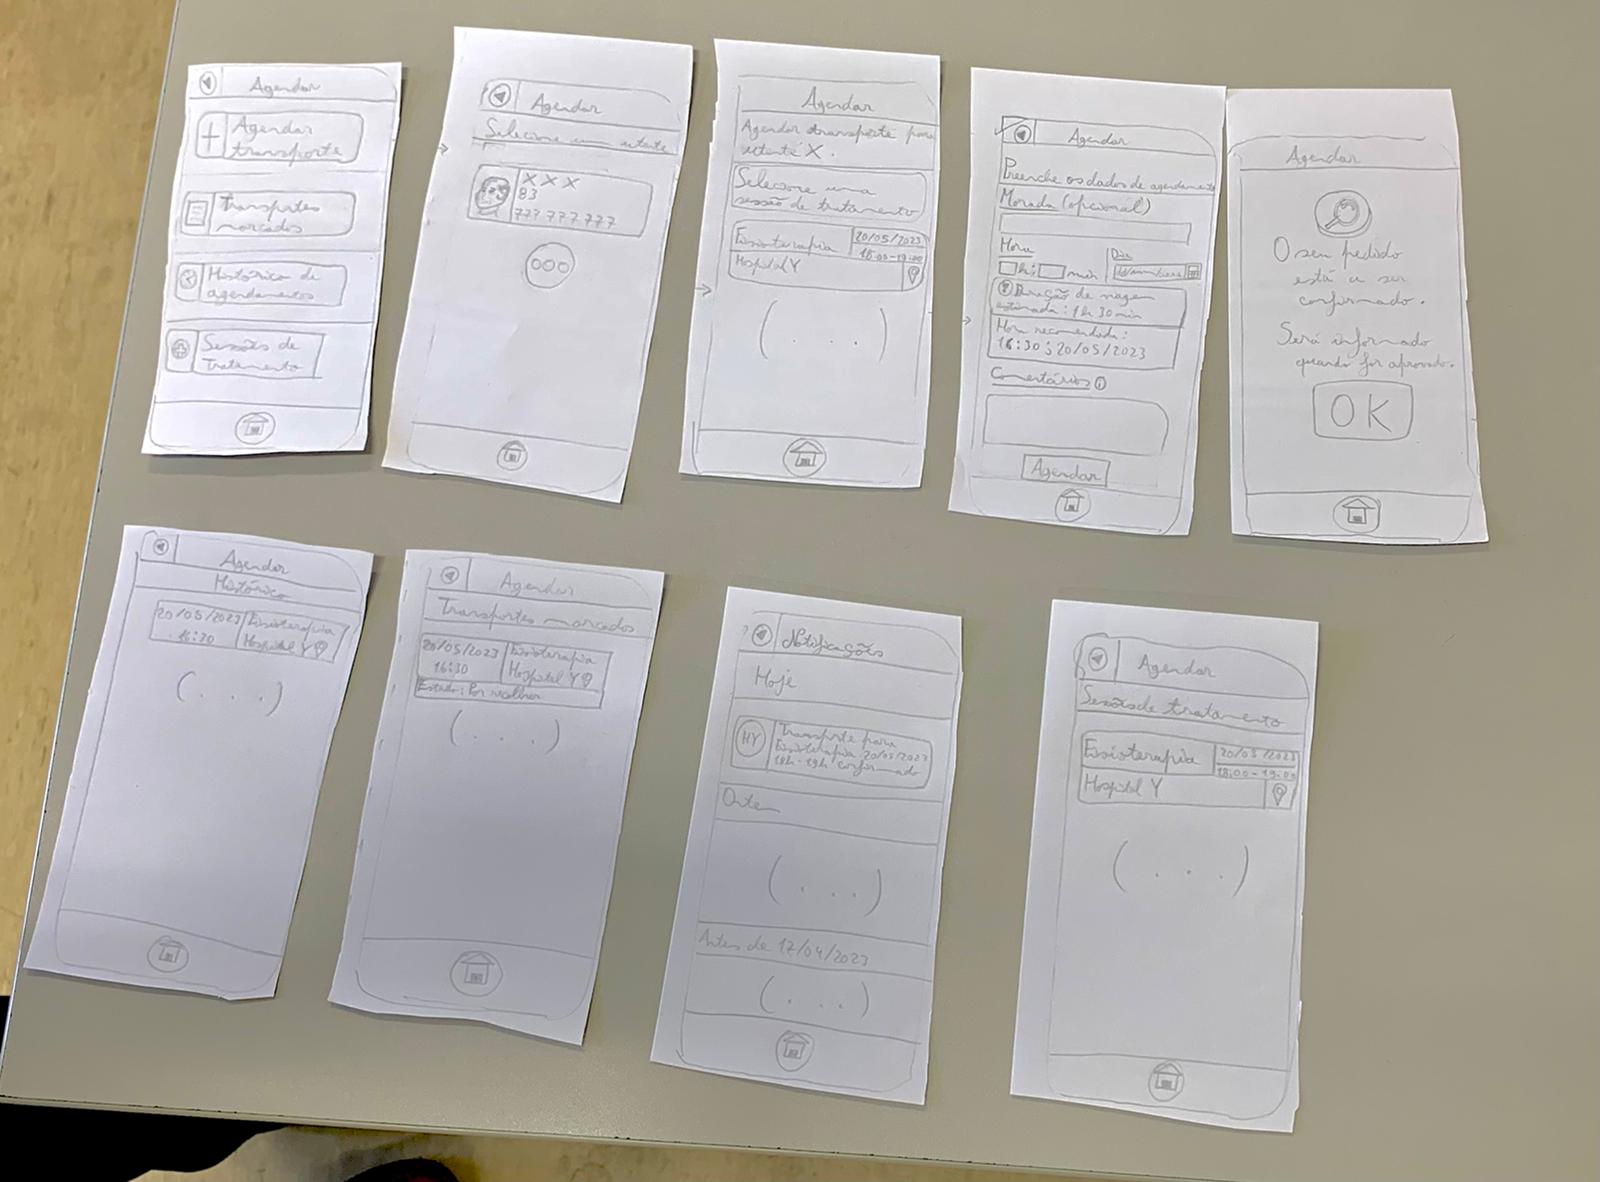 Agendar
Agendar
transporte
Transportes
marcados
Histórico de
agendamentos
Sessões de
Tratamento
Agendar
Selecione um utente
XXX
83
777 777 777
Agendar
Agendar transporte para
utente X.
Selecione uma
sessão de tratamento
Fisioterapia
20/05/2023
18:00-19:00
Hospital Y
(. . .)
Agendar
Preenche os dados de agendamento
Morada (opcional)
Hora
Dia
h: min
Duração de viagem
estimada: 1h 30min
Hora recomendada:
16:30; 20/05/2023
Comentários
Agendar
Agendar
O seu pedido
está a ser
confirmado.
Será informado
quando for aprovado.
OK
Agendar
Histórico
20/05/2023 Fisioterapia
16:30 Hospital Y
(. . .)
Agendar
Transportes marcados
20/05/2023 Fisioterapia
16:30 Hospital Y
Estado: Por recolher
(. . .)
Notificações
Hoje
HY
Transporte para
Fisioterapia 20/05/2023
18h-19h confirmado
Ontem
(. . .)
Antes de 17/04/2023
(. . .)
Agendar
Sessões de tratamento
Fisioterapia
20/05/2023
18:00-19:00
Hospital Y
(. . .)